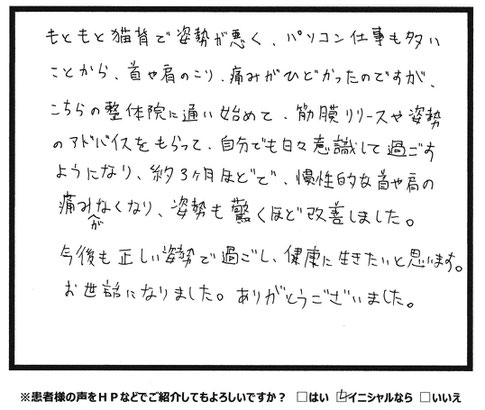 もともと猫背で姿勢が悪く、パソコン仕事も多い
ことから、首や肩のこり、痛みがひどかったのですが、
こちらの整体院に通い始めて、筋膜リリースや姿勢
のアドバイスをもらって、自分でも日々意識して過ごす
ようになり、約3ヶ月ほどで、慢性的な首や肩の
痛みがなくなり、姿勢も驚くほど改善しました。
今後も正しい姿勢で過ごし、健康に生きたいと思います。
お世話になりました。ありがとうございました。
※患者様の声をHPなどでご紹介してもよろしいですか? □はい ☑イニシャルなら □いいえ